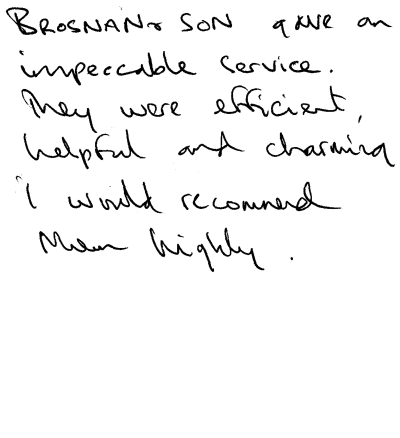 BROSNAN & SON gave an
impeccable service.
They were efficient,
helpful and charming
I would recommend
them highly.